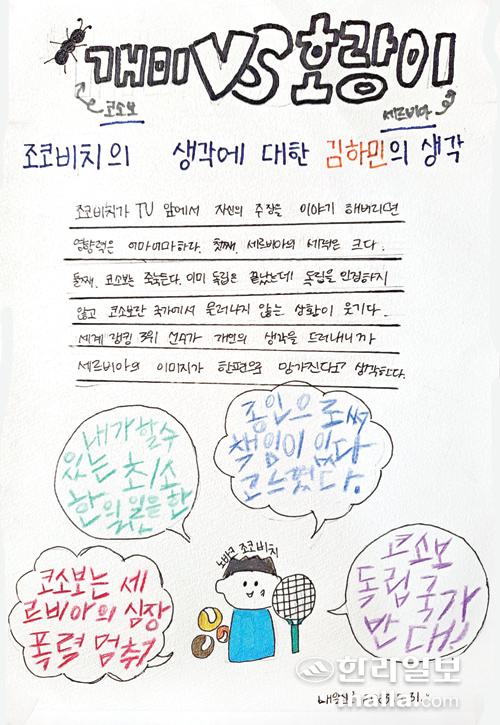 개미 VS 호랑이
코소보
세르비아
죠코비치의 생각에 대한 김하민의 생각
죠코비치가 TV 앞에서 자신의 주장을 이야기 해버리면
영향력은 어마어마하다. 첫째, 세르비아의 세력은 크다.
둘째, 코소보는 죽늗는다. 이미 독립은 끝났는데! 독립을 인정하지
않고 코소보란 국가에서 물러나지 않는 상황이 웃기다.
세계 랭킹 3위 선수가 개인의 생각을 드러내니까
세르비아의 이미지가 한편으로 망가진다고 생각한다.
내가 할 수
있는 최소
한의 일을 한
공인으로써
책임이 있다
고 느꼈다.
노바크 죠코비치
코소보는 세
르비아의 심장
폭력 멈춰?
코소보
독립 국가
반대!
한라일보
ihalla.com